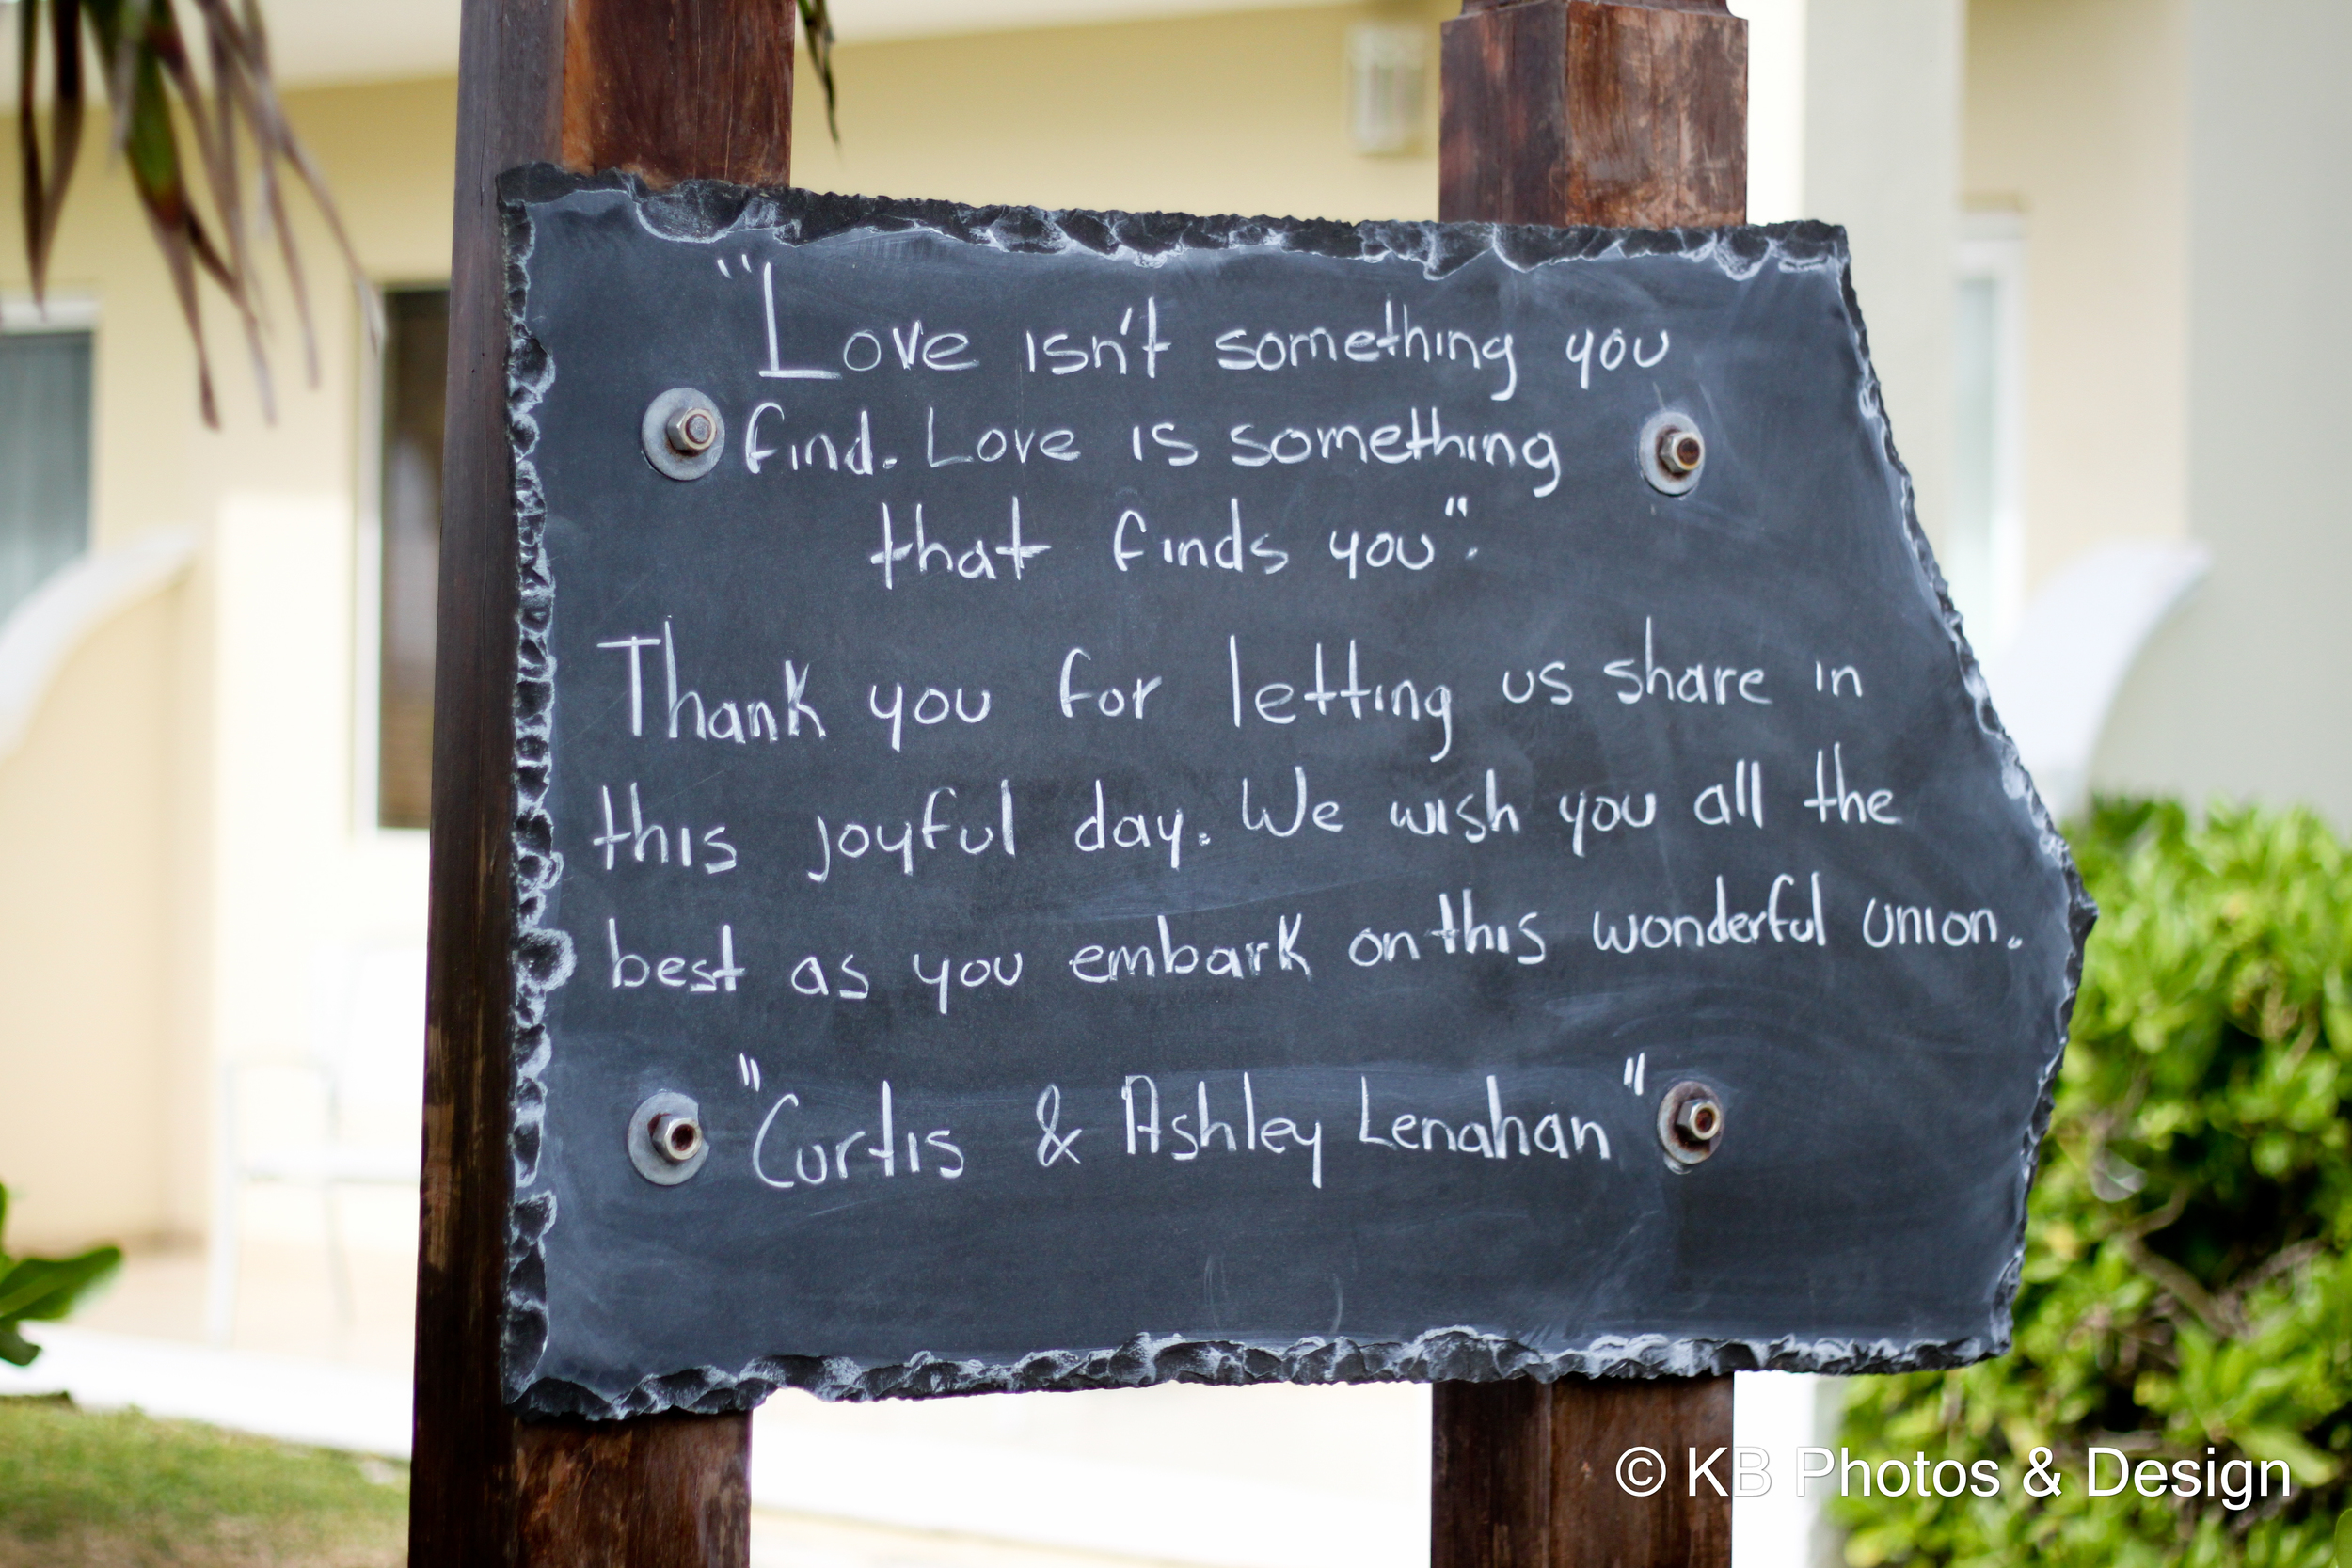 "Love isn't something you
find. Love is something
that finds you".
Thank you for letting us share in
this joyful day. We wish you all the
best as you embark on this wonderful union.
"Curtis & Ashley Lenahan"
© KB Photos & Design